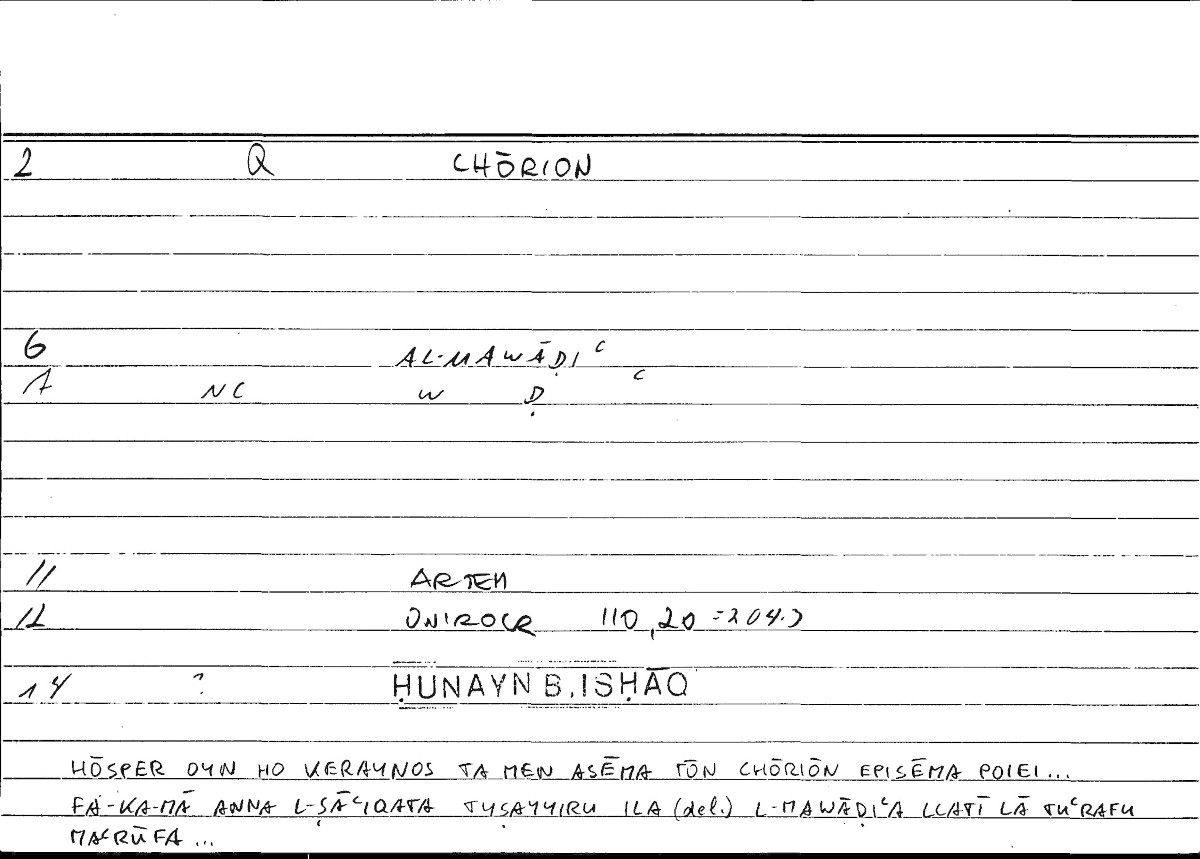 2 Q CHŌRION
6 AL-MAWĀḌIʿ
7 NC W Ḍ ʿ
11 ARTEM
12 ONIROCR 110,20 = 204.7
14 ? ḤUNAYN B. ISḤĀQ
HŌSPER OYN HO KERAYNOS TA MEN ASĒMA TŌN CHŌRIŌN EPISĒMA POIEI...
FA-KA-MĀ ANNA L-ṢĀʿIQATA TUṢAYYIRU ILA (del.) L-MAWĀḌIʿA LLATĪ LĀ TUʿRAFU
MAʿRŪFA ...